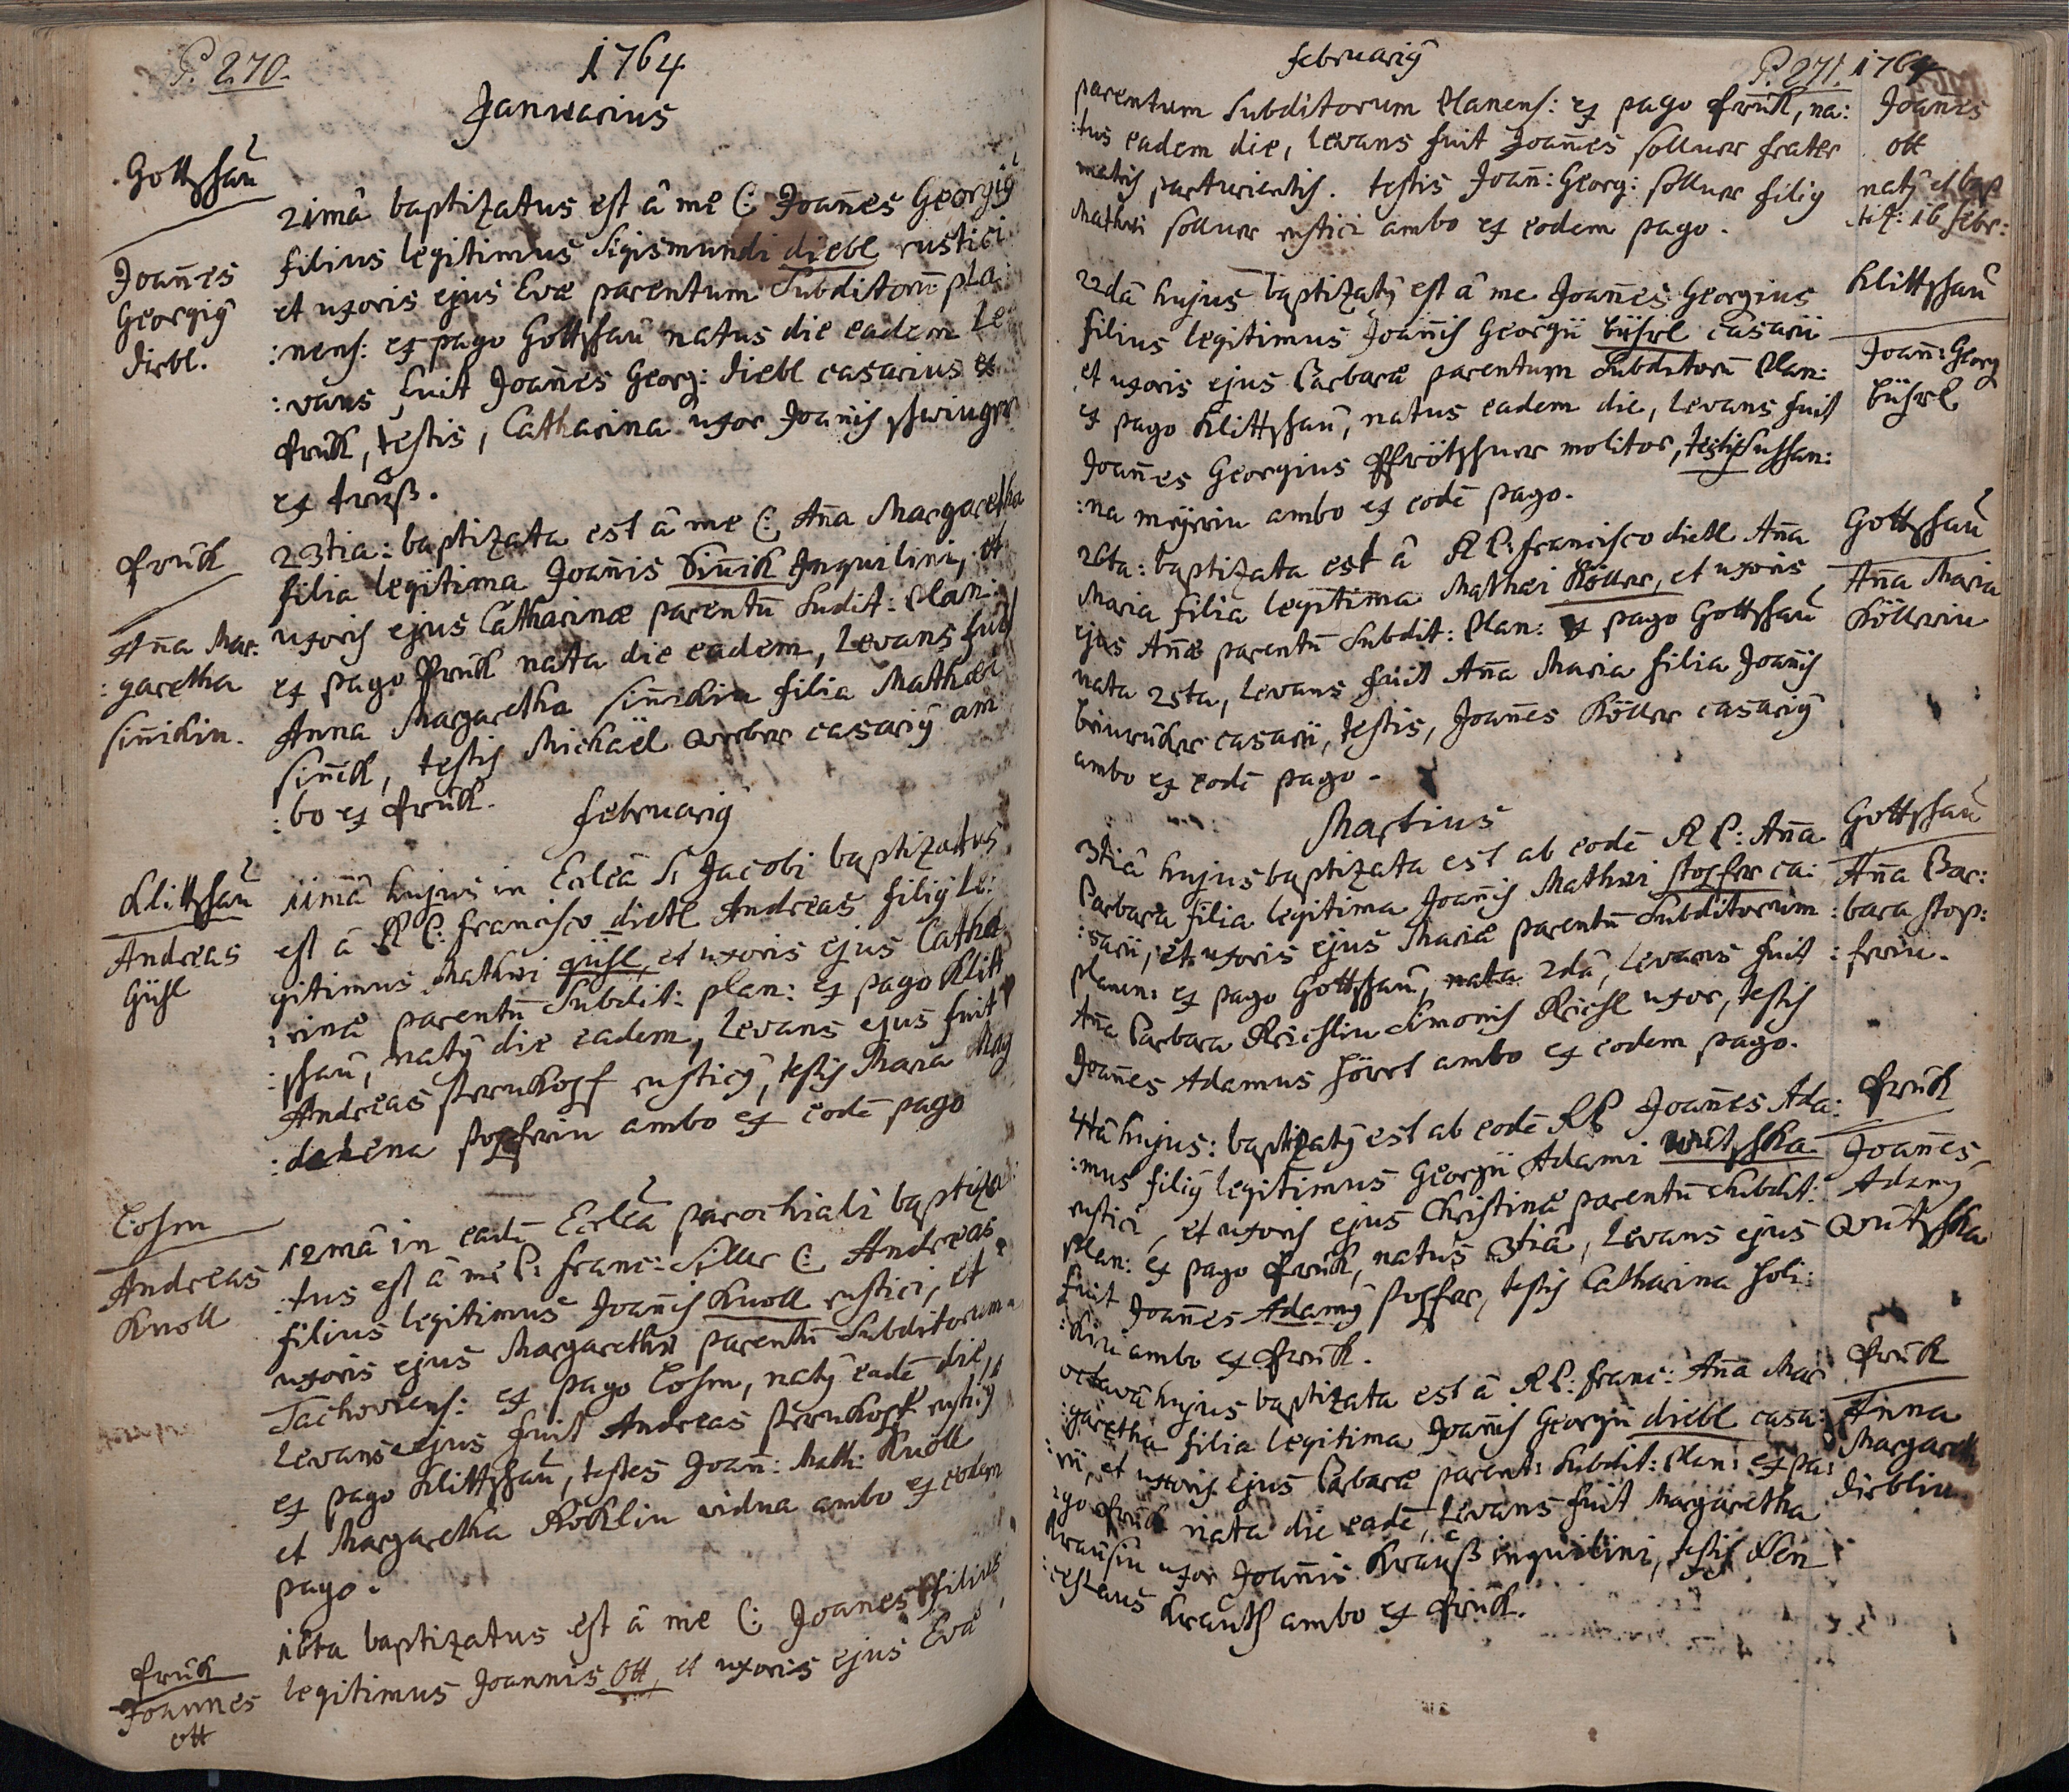 P. 270.
1764
Januarius
Gottschau
21mâ baptizatus est â me C: Joañes Georgiꝰ
Joañes
Georgiꝰ
diebl.
filius legitimus Sigismundi diebl rustici
et uxoris ejus Evæ parentum Subditorũ pla
:nens: ex pago Gottschau natus die eadem Le
:vans fuit Joañes Georg: diebl casarius ex
testis, Catharina uxor Joanis
ex
23tia: baptizata est â me C: Aña Margaretha
filia legitima Joañis Siñik Inquilini, et
Aña Mar:
:garetha
Siñikin.
uxoris ejus Catharinæ parentũ Sudit: Plan:
ex pago nata die eadem, Levans fuit
Anna Margaretha Siñikin filia Mathæi
Siñik, testis Michaël Weber casariꝰ am
:bo ex
februariꝰ
Klittschau
11mâ hujus in Ecclêa S: Jacobi baptizatus
Andreas
Gühl
est â R P: francisco dietl Andreas filiꝰ Le:
gitimus Mathei gühl, et uxoris ejus Catha
:rinæ parentũ Subdit: plan: ex pago Klitt
:schau, natꝰ die eadem, Levans ejus fuit
Andreas sternkopf rusticꝰ, testis Maria Mag
:dalena stopferin ambo ex eodẽ pago
Andreas
Knoll
12mâ in eadẽ Ecclêâ parochiali baptiza:
:tus est â me P: franc: C: Andreas
filius legitimus Joañis Knoll rustici, et
uxoris ejus Margarethæ parentũ Subditorum
Tachoviens: ex pago natꝰ eadẽ die,
Levans ejus fuit Andreas sternkopf rusticꝰ
ex pago Klittschau, testes Joañ: Math: Knoll
et Margaretha vidua ambo ex eodem
pago.
16ta baptizatus est â me C: Joanes filius
Joannes
ott
legitimus Joannis Ott, et uxoris ejus Evæ
februariꝰ
P. 271. 1764
parentum Subditorum Planens: ex pago na:
:tus eadem die, Levans fuit Joañes sollner frater
matris parturientis. testis Joañ: Georg: sollner filiꝰ
Mathei sollner rustici ambo ex eodem pago.
Joañes
ott
natꝰ et bap
tiz: 16 febr:
22dâ hujus baptizatꝰ est â me Joañes Georgius
filius legitimus Joañis Georgii casarii
et uxoris ejus Barbaræ parentum Subditorũ Plan:
ex pago Klittschau, natus eadem die, Levans fuit
Joañes Georgius molitor, testis Sussan:
:na meÿerin ambo ex eodẽ pago.
Klittschau
Joañ: Georg
26ta: baptizata est â R P: francisco dietl Aña
Maria filia legitima Mathei Köller, et uxoris
ejus Añæ parentũ Subdit: Plan: ex pago Gottschau
nata 25ta, Levans fuit Aña Maria filia Joañis
casarii, testis, Joañes Köller casariꝰ
ambo ex eodẽ pago.
Gottschau
Aña Maria
Köllerin
Martius
3tiâ hujus baptizata est ab eodẽ R P: Aña
Barbara filia legitima Joañis Mathei stopfer ca:
:sarii, et uxoris ejus Mariæ parentũ Subditorum
planen: ex pago Gottschau, nata 2dâ, Levans fuit
Aña Barbara Simonis uxor, testis
Joañes Adamus ambo ex eodem pago.
Gottschau
Aña Bar:
:bara stop:
:ferin.
4tâ hujus: baptizatꝰ est ab eodẽ R P Joañes Ada:
:mus filiꝰ legitimus Georgii Adami Wutschka
rustici, et uxoris ejus Christinæ parentũ Subdit:
Plan: ex pago natus 3tiâ, Levans ejus
fuit Joañes Adamꝰ stopfer, testis Catharina
ambo ex
Joañes
Adamꝰ
Wutschka
octavâ hujus baptizata est â R P: Franc: Aña Mar
:garetha filia legitima Joañis Georgii diebl casa:
:rii, et uxoris ejus Barbaræ parent: Subdit: Plan: ex pa:
:go nata die eadẽ, Levans fuit Margaretha
Krausin uxor Joañis Krauß inquilini, testis Wen
:ceslaus ambo ex
Anna
Margareth
dieblin